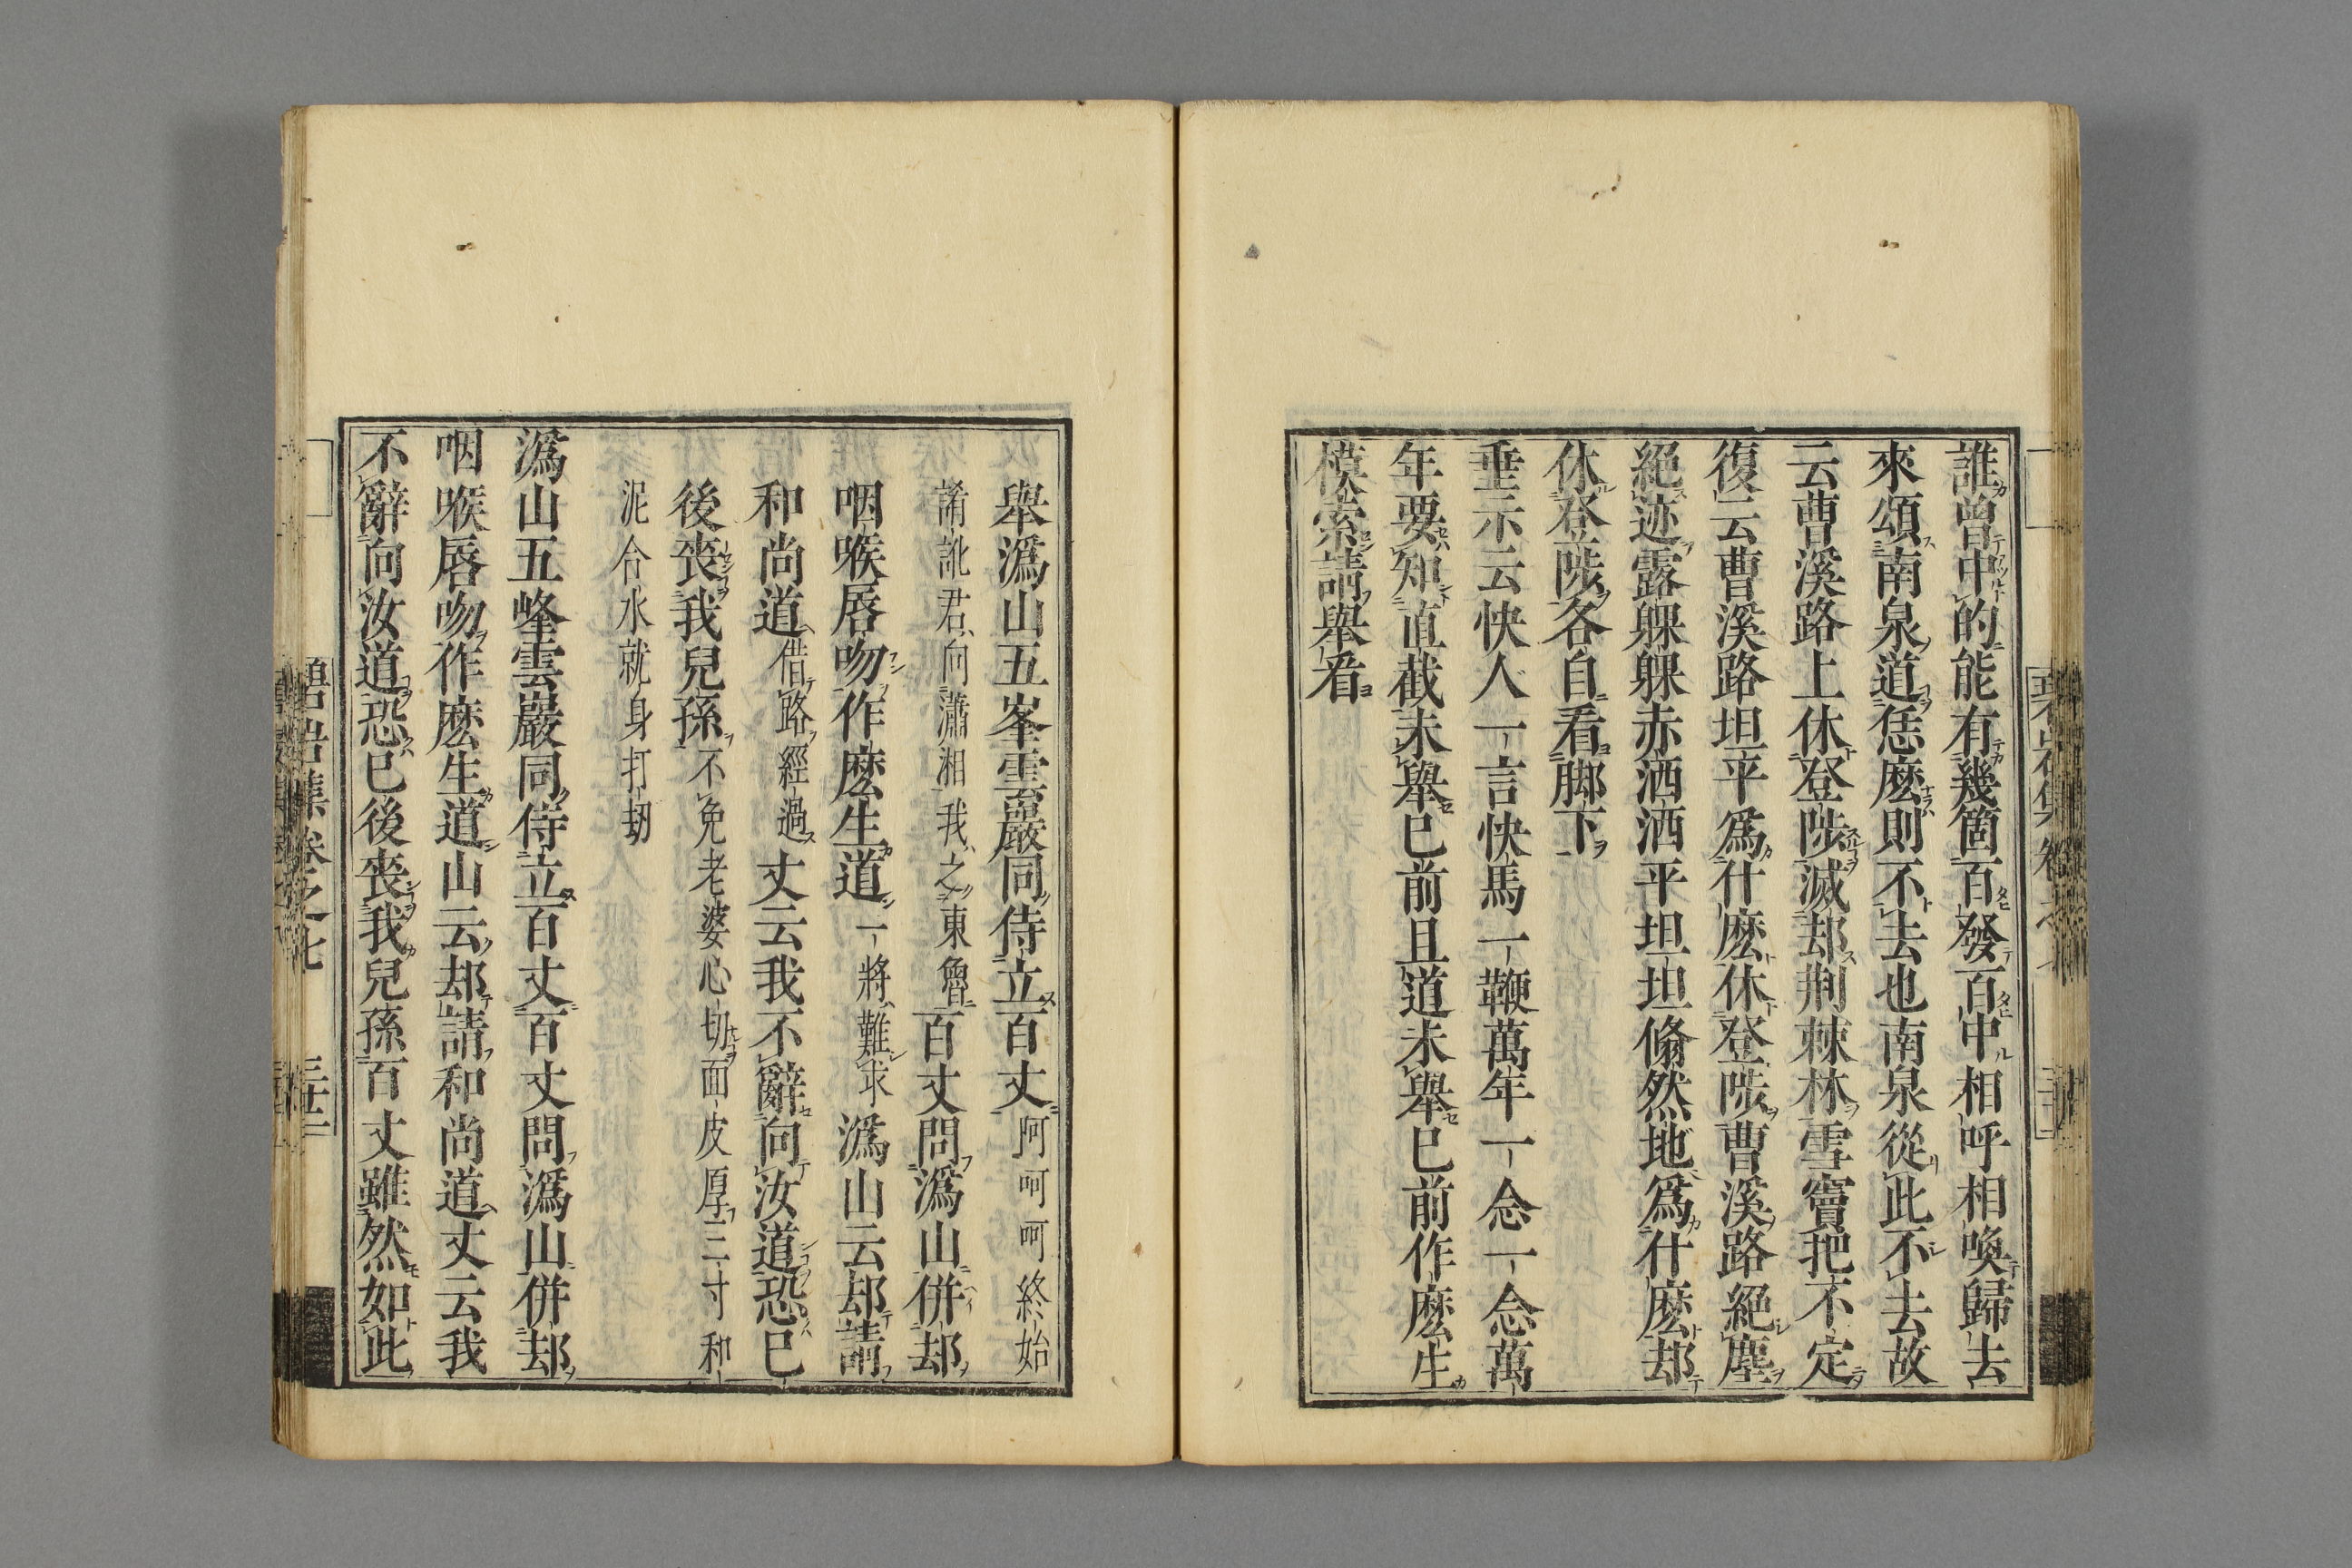 誰曾中的能有幾箇百發百中相呼相喚歸去
來頌南泉道恁麽則不去也南泉從此不去故
云曹溪路上休登陟滅却荆棘林雪竇把不定
復云曹溪路坦平爲什麽休登陟曹溪路絕塵
絕迹露躶躶赤洒洒平坦坦翛然地爲什麽却
休登陟各自看脚下
垂示云快人一言快馬一鞭萬年一念一念萬
年要知直截未舉已前且道未舉已前作麽生
摸索請舉看
舉潙山五峯雲巖同侍立百丈阿呵呵終始
誵訛君向瀟湘我之東魯百丈問潙山併却
咽喉唇吻作麽生道一將難求潙山云却請
和尚道借路經過丈云我不辭向汝道恐已
後喪我兒孫不免老婆心切面皮厚三寸和
泥合水就身打劫
潙山五峰雲巖同侍立百丈百丈問潙山併却
咽喉唇吻作麽生道山云却請和尚道丈云我
不辭向汝道恐已後喪我兒孫百丈雖然如此